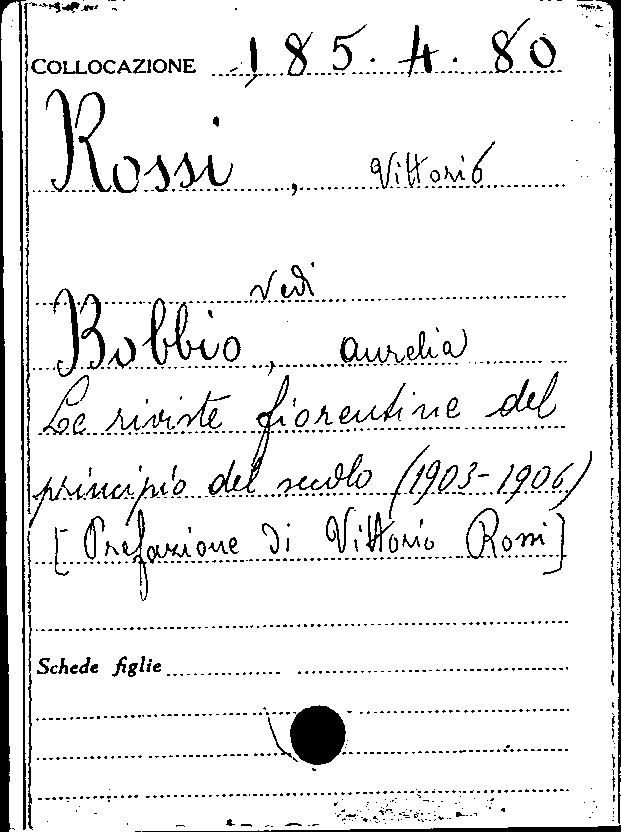 COLLOCAZIONE 185.4.80
Rossi, Vittorio
vedi
Bobbio, Aurelia
Le riviste fiorentine del
principio del secolo (1903-1906)
[Prefazione di Vittorio Rossi]
Schede figlie